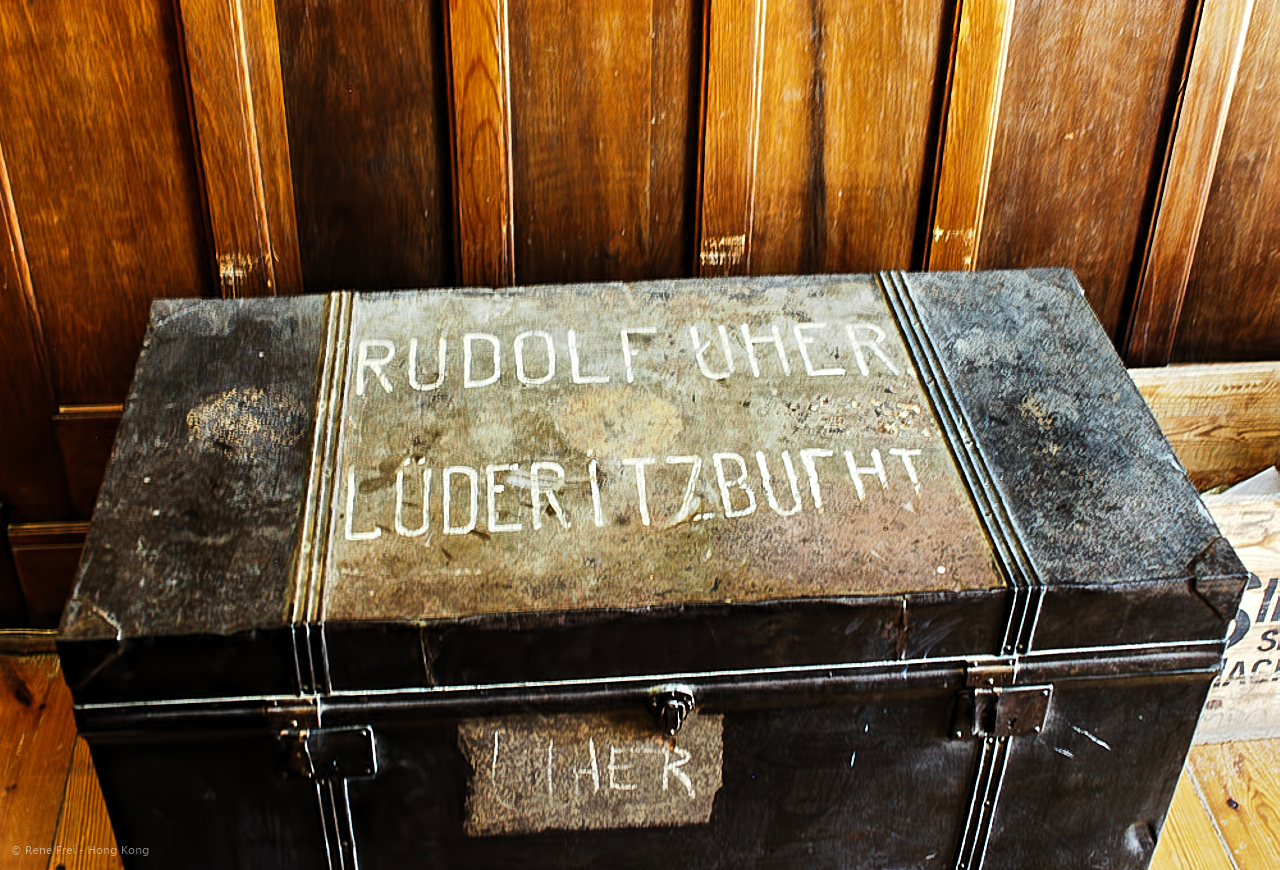 RUDOLF UHER.
LÜDERITZBUCHT
UHER
© Rene Frei - Hong Kong